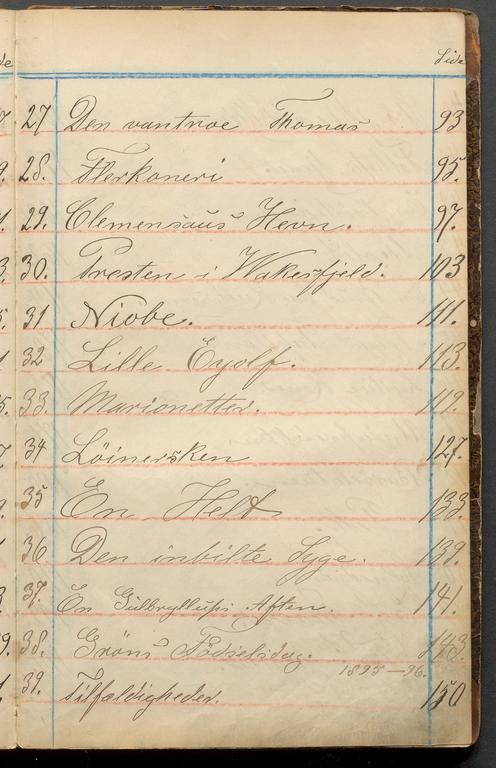 Side
27 Den vantroe Thomas 93
28. Flerkoneri 95.
29. Clemensaus Hevn. 97.
30. Presten i Wakesfjeld. 103
31 Niobe. 111.
32 Lille Eyolf. 113.
33. Marionetter. 119.
34 Löinersken 127.
35 En Helt 133.
36 Den inbilte Syge. 139.
37. En Gulbryllups Aften. 141.
38. Gröns Födselsdag. 143.
1895-96.
39. Tilfældigheder. 150